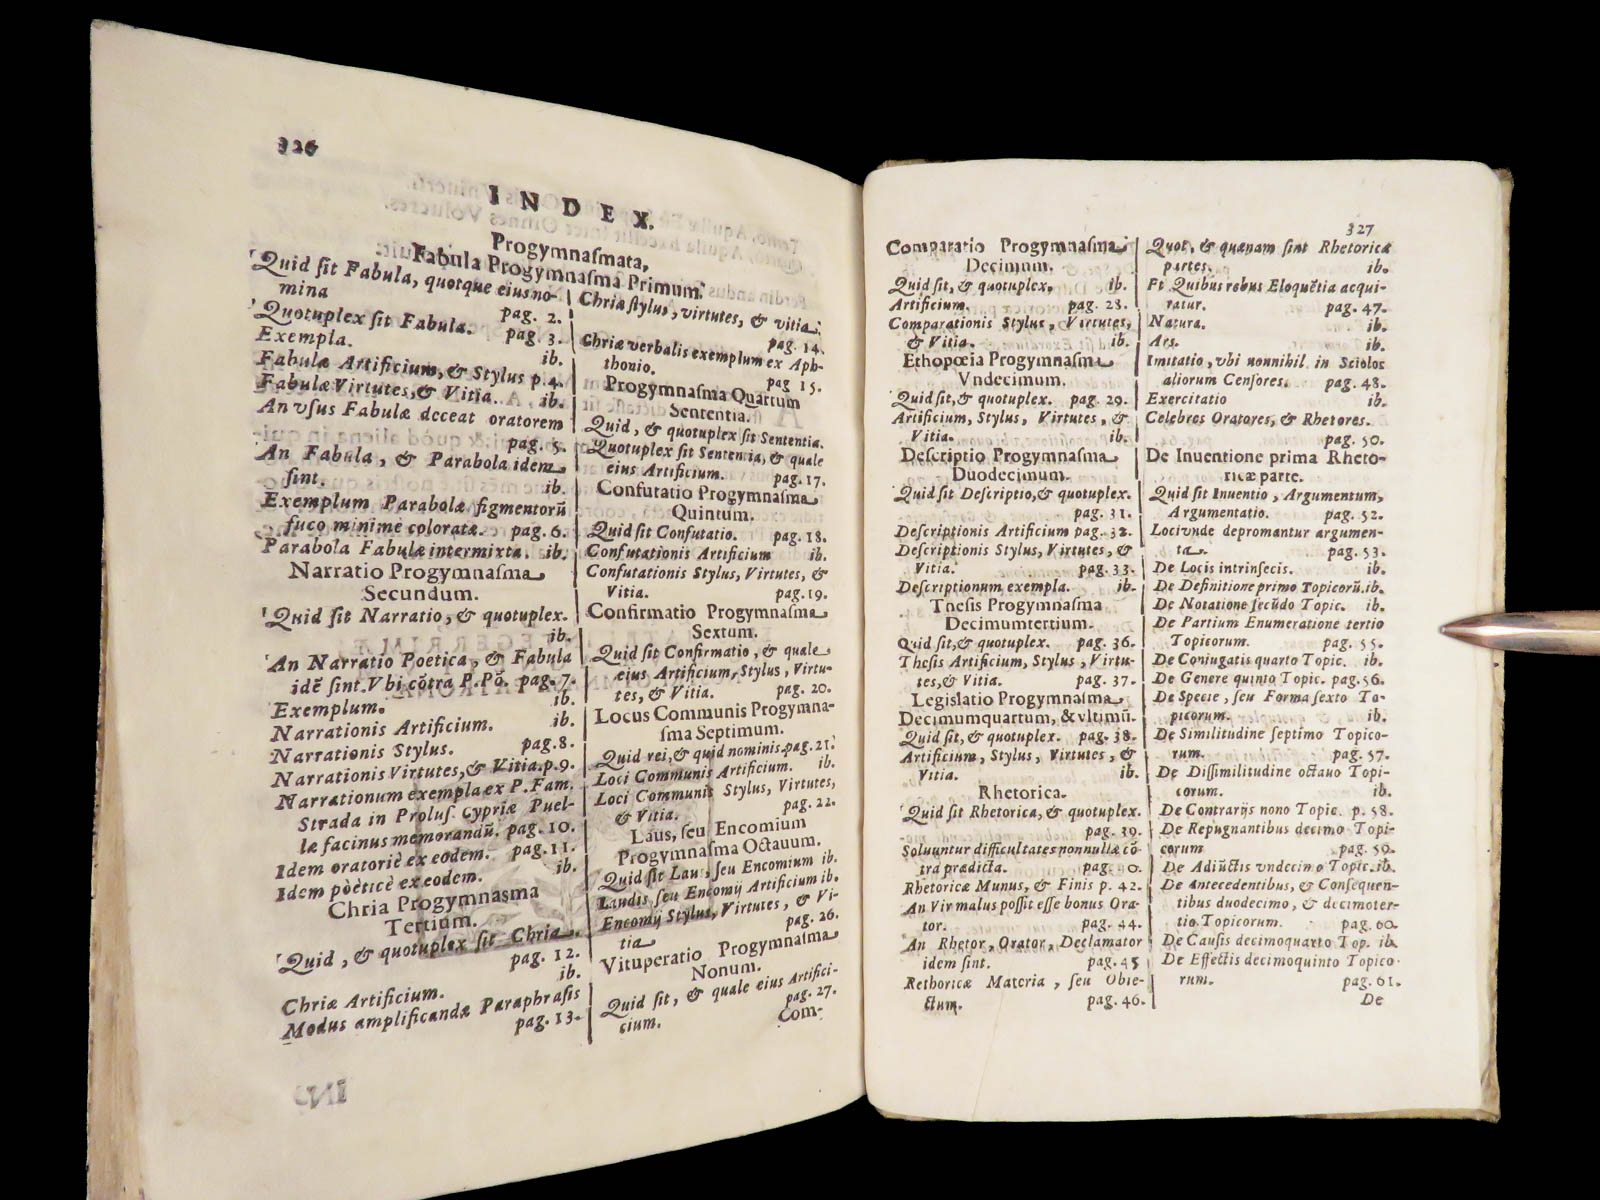 326
INDEX.
Progymnaſmata,
Fabula Progymnaſma Primum.
Quid ſit Fabula, quotque eius no-
mina pag. 2.
Quotuplex ſit Fabula. pag. 3.
Exempla. ib.
Fabulæ Artificium, & Stylus p.4.
Fabulæ Virtutes, & Vitia. ib.
An vſus Fabulæ deceat oratorem
pag. 5.
An Fabula, & Parabola idem
ſint. ib.
Exemplum Parabolæ figmentorũ
fuco minimè coloratæ. pag. 6.
Parabola Fabulæ intermixta. ib.
Narratio Progymnaſma
Secundum.
Quid ſit Narratio, & quotuplex.
ib.
An Narratio Poetica, & Fabula
idẽ ſint. Vbi cõtra P. Põ. pag. 7.
Exemplum. ib.
Narrationis Artificium. ib.
Narrationis Stylus. pag. 8.
Narrationis Virtutes, & Vitia. p.9.
Narrationum exempla ex P. Fam.
Strada in Proluſ. Cypriæ Puel-
læ facinus memorandũ. pag. 10.
Idem oratoriè ex eodem. pag. 11.
Idem pòeticè ex eodem. ib.
Chria Progymnaſma
Tertium.
Quid, & quotuplex ſit Chria.
pag. 12.
Chriæ Artificium. ib.
Modus amplificandæ Paraphraſis
pag. 13.
Chriæ ſtylus, virtutes, & vitia.
pag. 14.
Chriæ verbalis exemplum ex Aph-
thonio. pag 15.
Progymnaſma Quartum
Sententia.
Quid, & quotuplex ſit Sententia.
Quotuplex ſit Sententia, & quale
eius Artificium. pag. 17.
Confutatio Progymnaſma
Quintum.
Quid ſit Confutatio. pag. 18.
Confutationis Artificium ib.
Confutationis Stylus, Virtutes, &
Vitia. pag. 19.
Confirmatio Progymnaſma
Sextum.
Quid ſit Confirmatio, & quale
eius Artificium, Stylus, Virtu-
tes, & Vitia. pag. 20.
Locus Communis Progymna-
ſma Septimum.
Quid rei, & quid nominis. pag. 21.
Loci Communis Artificium. ib.
Loci Communis Stylus, Virtutes,
& Vitia. pag. 22.
Laus, ſeu Encomium
Progymnaſma Octauum.
Quid ſit Laus, ſeu Encomium ib.
Laudis ſeu Encomij Artificium ib.
Encomij Stylus, Virtutes, & Vi-
tia pag. 26.
Vituperatio Progymnaſma
Nonum.
Quid ſit, & quale eius Artifici-
cium. pag. 27.
Com-
327
Comparatio Progymnaſma
Decimum.
Quid ſit, & quotuplex, ib.
Artificium. pag. 28.
Comparationis Stylus, Virtutes,
& Vitia. ib.
Ethopœia Progymnaſma
Vndecimum.
Quid ſit, & quotuplex. pag. 29.
Artificium, Stylus, Virtutes, &
Vitia. ib.
Deſcriptio Progymnaſma
Duodecimum.
Quid ſit Deſcriptio, & quotuplex.
pag. 31.
Deſcriptionis Artificium pag. 32.
Deſcriptionis Stylus, Virtutes, &
Vitia. pag. 33.
Deſcriptionum exempla. ib.
Theſis Progymnaſma
Decimumtertium.
Quid ſit, & quotuplex. pag. 36.
Theſis Artificium, Stylus, Virtu-
tes, & Vitia. pag. 37.
Legislatio Progymnaſma,
Decimumquartum, & vltimũ.
Quid ſit, & quotuplex. pag. 38.
Artificium, Stylus, Virtutes, &
Vitia. ib.
Rhetorica.
Quid ſit Rhetorica, & quotuplex.
pag. 39.
Soluuntur difficultates nonnullæ cõ-
tra prædicta. pag. 40.
Rhetoricæ Munus, & Finis p. 42.
An Vir malus poſſit eſſe bonus Ora-
tor. pag. 44.
An Rhetor, Orator, Declamator
idem ſint. pag. 45
Rethoricæ Materia, ſeu Obie-
ctum. pag. 46.
Quot, & quænam ſint Rhetoricæ
partes. ib.
Et Quibus rebus Eloquẽtia acqui-
ratur. pag. 47.
Natura. ib.
Ars. ib.
Imitatio, vbi nonnihil in Sciolos
aliorum Cenſores. pag. 48.
Exercitatio ib.
Celebres Oratores, & Rhetores.
pag. 50.
De Inuentione prima Rheto-
ricæ parte.
Quid ſit Inuentio, Argumentum,
Argumentatio. pag. 52.
Loci vnde depromantur argumen-
ta. pag. 53.
De Locis intrinſecis. ib.
De Definitione primo Topicorũ. ib.
De Notatione ſecũdo Topic. ib.
De Partium Enumeratione tertio
Topicorum. pag. 55.
De Coniugatis quarto Topic. ib.
De Genere quinto Topic. pag. 56.
De Specie, ſeu Forma ſexto To-
picorum. ib.
De Similitudine ſeptimo Topico-
rum. pag. 57.
De Diſſimilitudine octauo Topi-
corum. ib.
De Contrarijs nono Topic. p. 58.
De Repugnantibus decimo Topi-
corum pag. 59.
De Adiũctis vndecimo Topic. ib.
De Antecedentibus, & Conſequen-
tibus duodecimo, & decimoter-
tio Topicorum. pag. 60.
De Cauſis decimoquarto Top. ib.
De Effectis decimoquinto Topico-
rum. pag. 61.
De